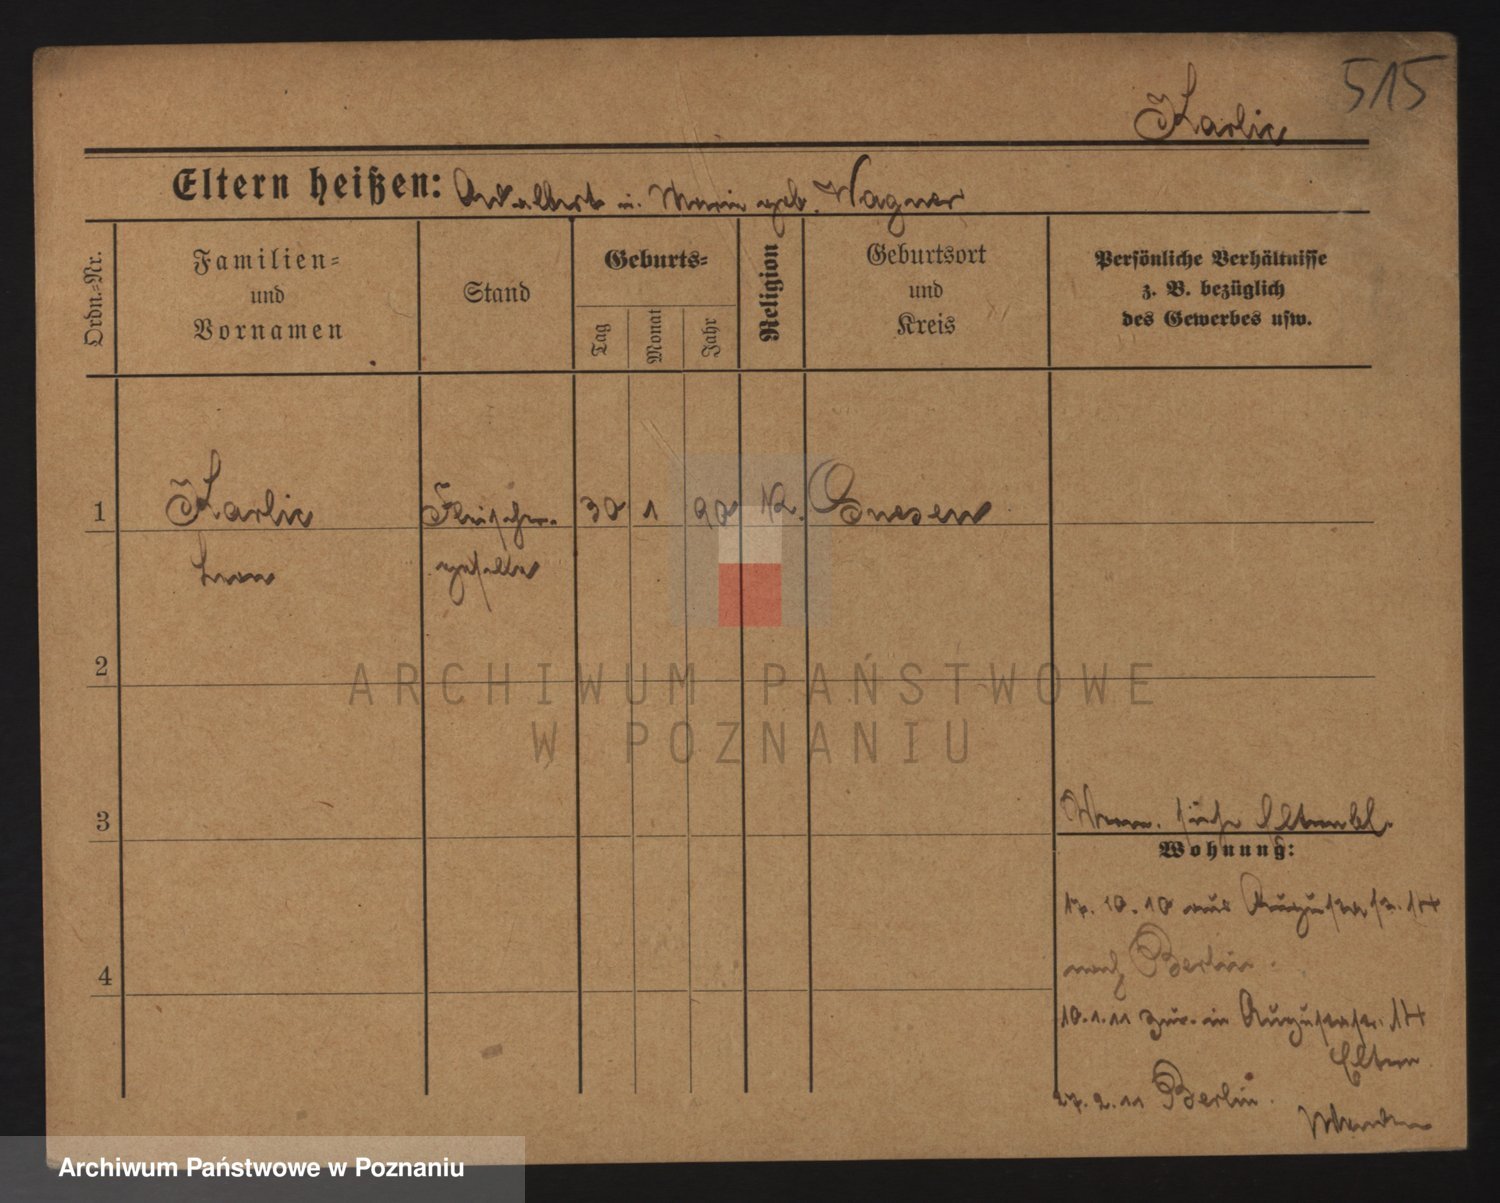 515
Karlic
Eltern heißen: Adalbert u. Marie geb. Wagner
Ordn.-Nr.
Familien-
und
Vornamen
Stand
Geburts-
Tag
Monat
Jahr
Religion
Geburtsort
und
Kreis
Persönliche Verhältnisse
z. B. bezüglich
des Gewerbes usw.
1 Karlic Fleischer- 30 1 90 K. Gnesen
Leon geselle
2
ARCHIWUM PAŃSTWOWE
W POZNANIU
3
siehe Elternbl.
Wohnung:
17. 10. 10 aus Augustastr. 14
nach Berlin.
4
10. 1. 11 zur. in Augustastr. 14
Eltern
27. 2. 11 Berlin.
Archiwum Państwowe w Poznaniu